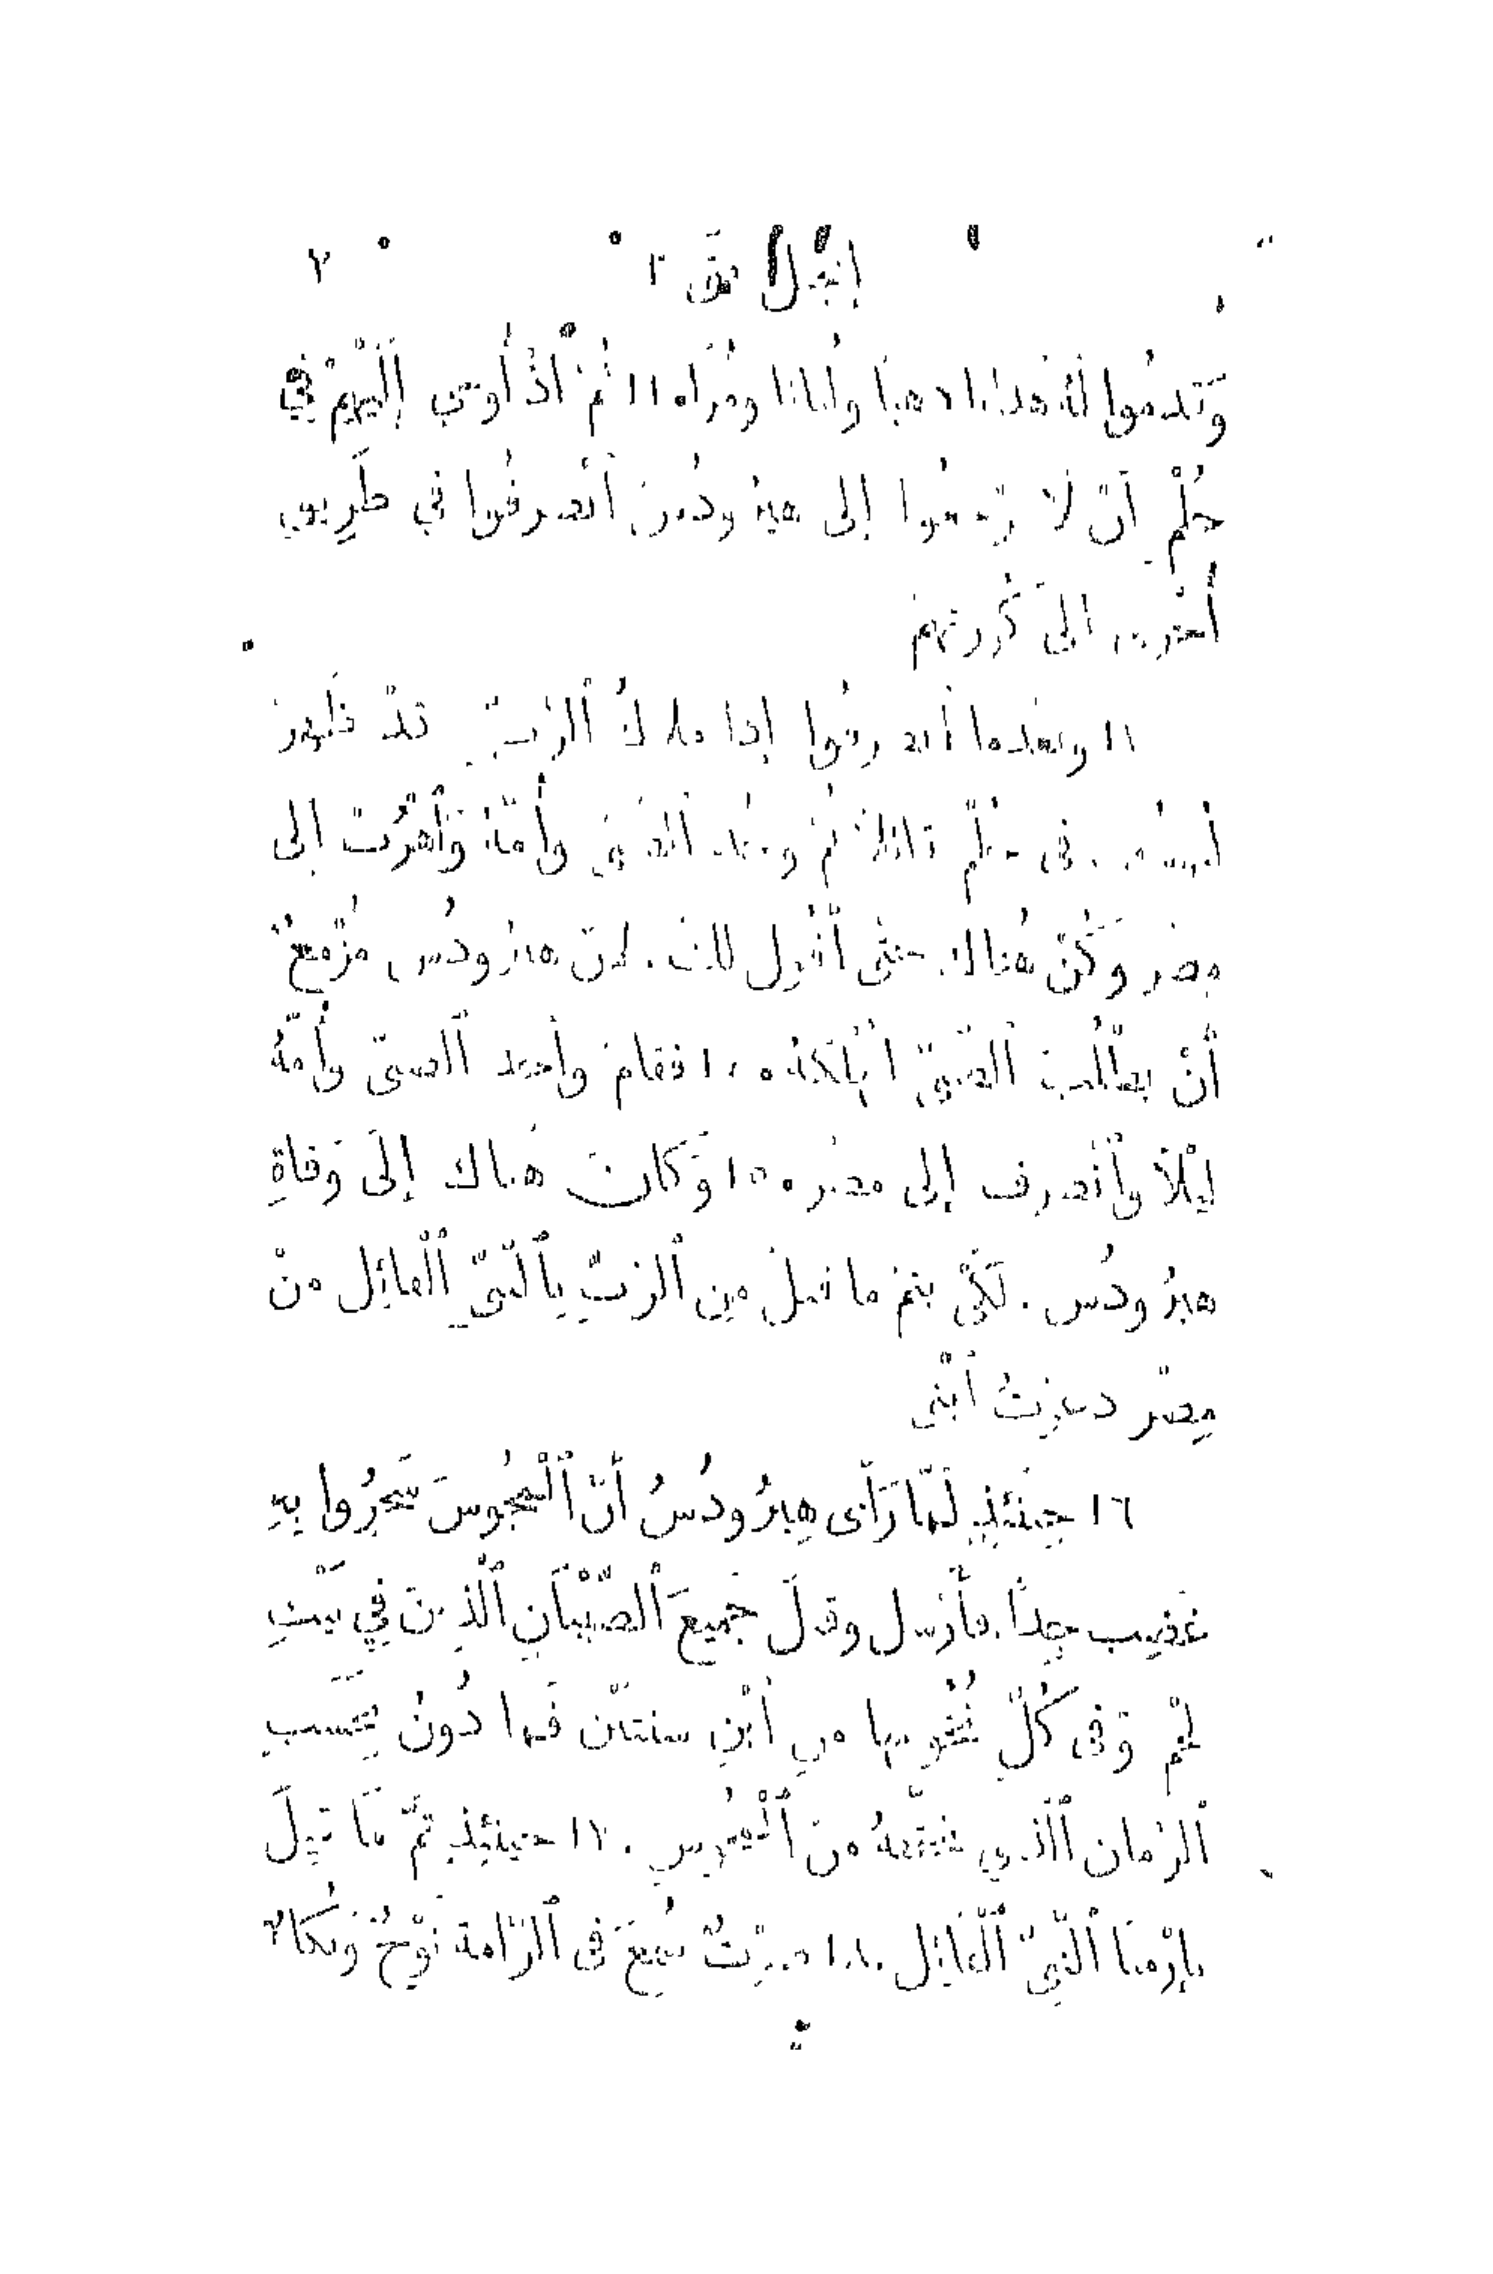 إنجيل متى ٢ ٧
وَقَدَّمُوا لَهُ هَدَايَا ذهبًا ولُبانًا ومُرًّا. ١٢ ثُمَّ إِذْ أُوحِيَ إِلَيْهِمْ فِي
حُلْمٍ أَنْ لاَ يَرْجِعُوا إلى هيرُودُسَ أنصرفُوا في طَرِيقٍ
أُخْرى إلى كُورتهم
١٣ وبعْدما أنصرفُوا إذا ملاكُ ٱلرَّبِّ قدْ ظَهرَ
ليوسُفَ في حُلْمٍ قائلاً قُمْ وخُذِ ٱلصَّبيَّ وأُمَّهُ وَٱهْرُبْ إلى
مِصْرَ وَكُنْ هُناك حتَّى أَقُولَ لكَ. لأنَّ هيرُودُسَ مُزْمِعٌ
أَنْ يطْلُبَ ٱلصَّبيَّ ليُهْلكهُ. ١٤ فقامَ وأخذ ٱلصبيَّ وأُمَّهُ
ليْلاً وٱنْصرف إلى مصْر. ١٥ وَكَانَ هُناك إِلَى وَفاةِ
هيرُودُس. لكَيْ يتمَّ ما قيلَ مِن ٱلرَّبِّ بِٱلنَّبيِّ ٱلْقائِل منْ
مِصْرَ دعوْتُ ٱبْني
١٦ حِينَئِذٍ لَمَّا رَأَى هِيرُودُسُ أَنَّ ٱلْمَجُوسَ سَخِرُوا بِهِ
غَضِب جِدًّا. فأَرْسل وقتلَ جَمِيعَ ٱلصِّبْيَانِ ٱلَّذِينَ فِي بَيْتِ
لَحْمٍ وَفي كُلِّ تُخُومِها منِ ٱبْنِ سنتيْن فَما دُونُ بِحَسَبِ
ٱلزَّمانِ ٱلَّذي تحقَّقهُ منَ ٱلْمجُوسِ. ١٧ حينئِذٍ تَمَّ مَا قِيلَ
بإِرْميَا ٱلنَّبيِّ ٱلْقَائِل. ١٨ صوْتٌ سُمِعَ في ٱلرَّامة نَوْحٌ وَبُكَاءٌ